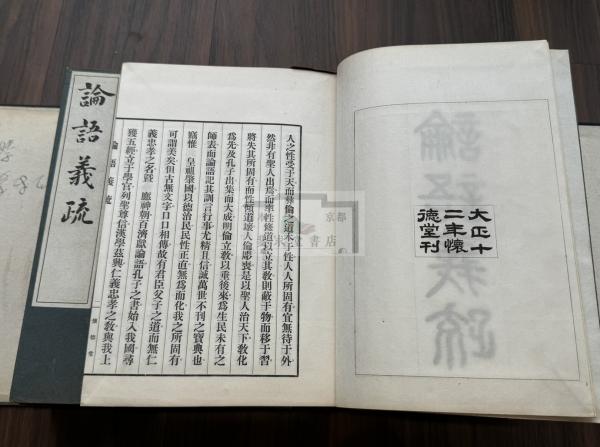 大正十
二年懷
德堂刊
人之性受于天而彝倫之道本于性人人所固有宜無待于外
然非有聖人出焉而率性修道以立其教則蔽于物而移于習
將失其所固有而性壞道壞人倫彫喪是以聖人治天下敎化
為先及孔子出集而大成明倫立敎以垂後來爲生民未有之
師表而論語記其訓言行事尤精且信誠萬世不刊之寶典也
竊惟 皇祖肇國以德治民民性正直無爲而化我之所固有
可謂美矣但古無文字口口相傳故有君臣父子之道而無仁
義忠孝之名曁 應神朝百濟獻論語孔子之書始入我國尋
獲五經立于學官列聖尊信漢學茲興仁義忠孝之敎與我上
論語義疏
懷德堂
論語義疏
論語義疏
京都
書店